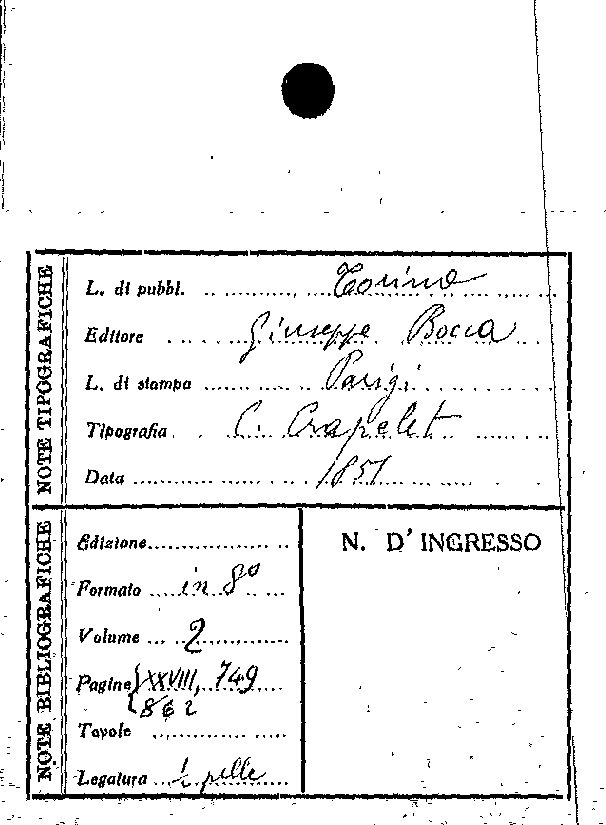 NOTE TIPOGRAFICHE
L. di pubbl. Torino
Editore Giuseppe Bocca
L. di stampa Parigi
Tipografia C. Crapelet
Data 1851
NOTE BIBLIOGRAFICHE
Edizione
Formato in 8º
Volume 2
Pagine XXVIII, 749
862
Tavole
Legatura ½ pelle
N. D'INGRESSO